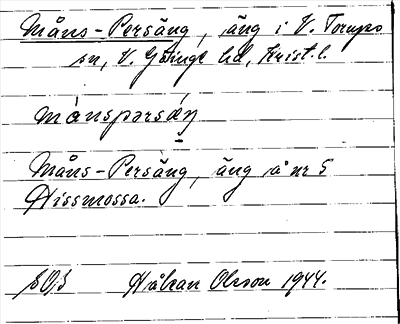 Måns-Persäng, äng i V. Torups
sn, V. Göinge hd, Krist. l.
månspərsǽŋ
Måns-Persäng, äng å nr 5
Hissmossa.
Håkan Olsson 1944.